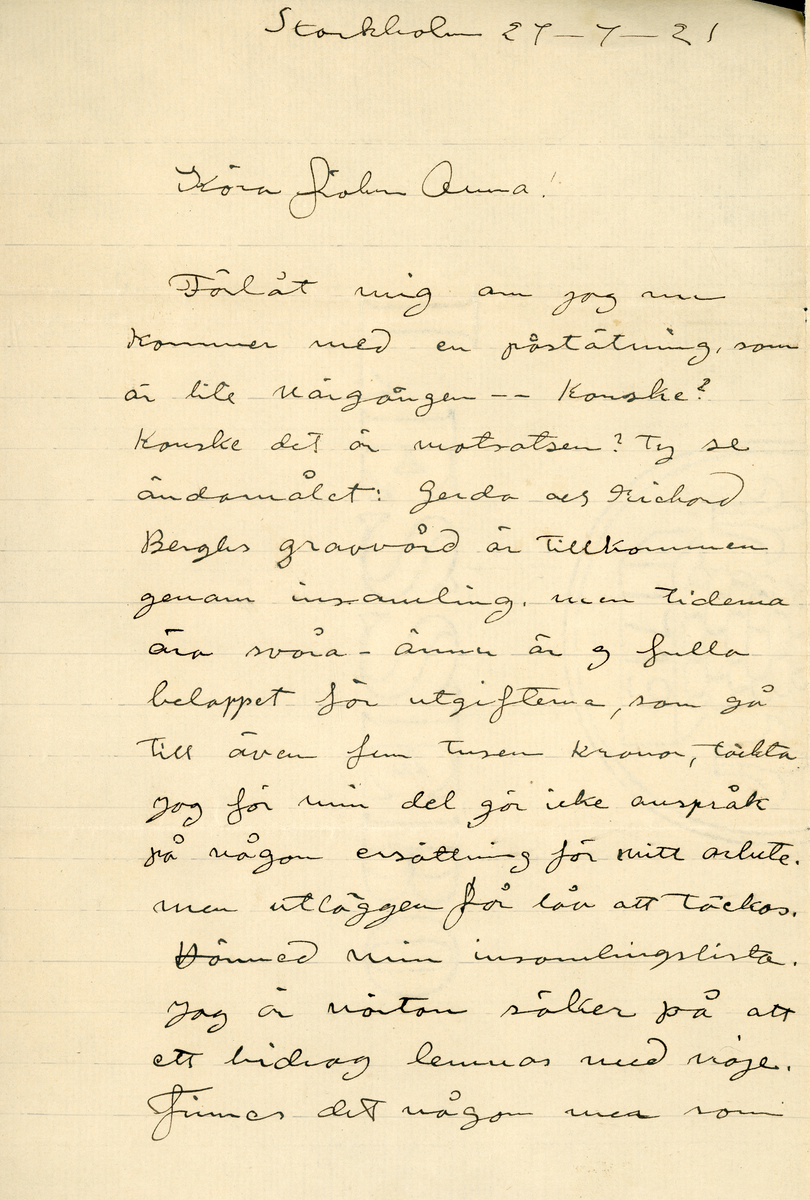 Stockholm 27-7-21
Kära John Anna!
Förlåt mig om jag nu
kommer med en påstötning, som
är lite närgången -- Kanske?
Kanske det är motsatsen? Ty se
ändamålet: Gerda och Richard
Berghs gravvård är tillkommen
genom insamling. men tiderna
äro svåra - ännu är ej fulla
beloppet för utgifterna, som gå
till även fem tusen kronor, täckta
Jag för min del gör icke anspråk
på någon ersättning för mitt arbete.
men utläggen får lov att täckas.
Härmed min insamlingslista.
Jag är nästan säker på att
ett bidrag lemnas med nöje.
Finnes det någon mer som